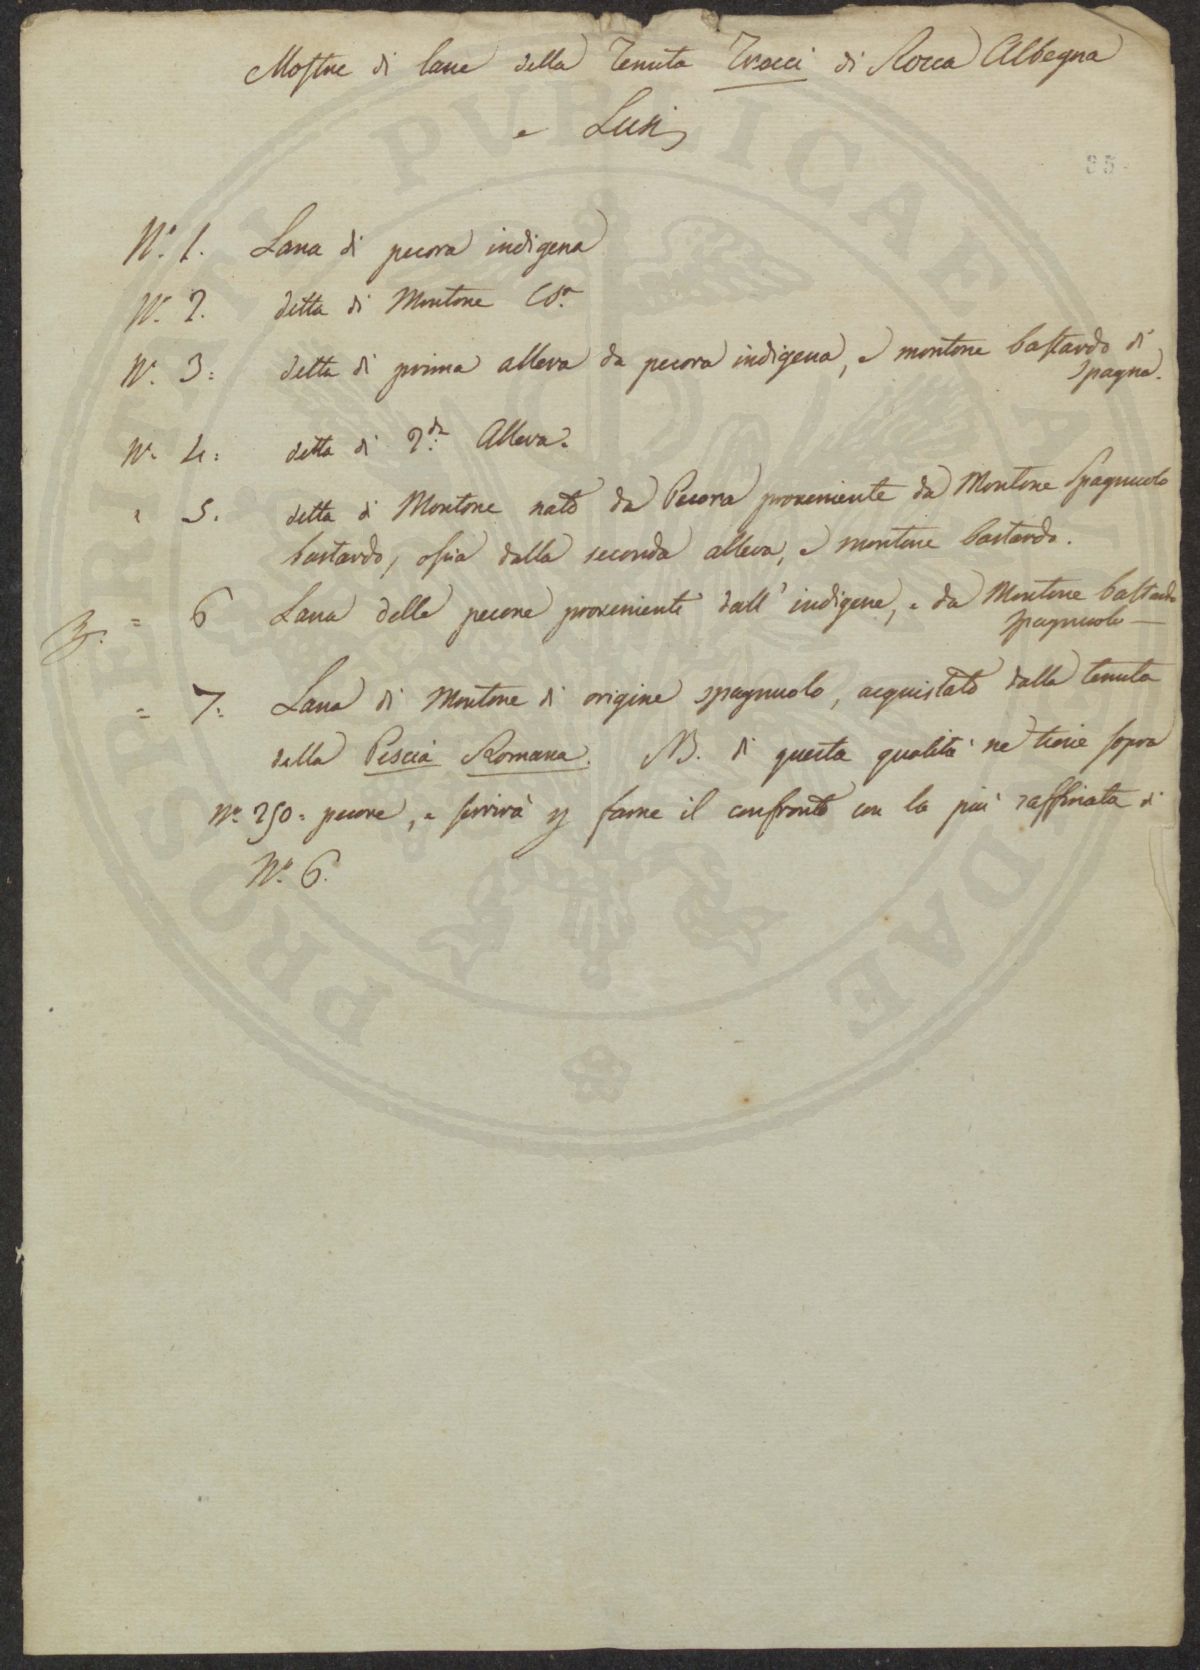 Mostre di lane della Tenuta Tracci di Rocca Albegna
e Lusi
35
N.° 1. Lana di pecora indigena
N.° 2. detta di Montone Cd.a
N.° 3: detta di prima alleva da pecora indigena, e montone bastardo di
Spagna.
N.° 4: detta di 2.da Alleva.
" 5. detta di Montone nato da Pecora proveniente da Montone Spagnuolo
bastardo, ossia dalla seconda alleva, e montone bastardo.
= 6 Lana delle pecore proveniente dall' indigene, e da Montone bastardo
spagnuolo —
= 7: Lana di Montone di origine spagnuolo, acquistato dalla tenuta
della Pescia Romana. NB. di questa qualità ne tiene sopra
N.° 250 = pecore, e servirà p farne il confronto con la più raffinata di
N.° 6.
PROSPERITATI PUBLICAE AUGENDAE